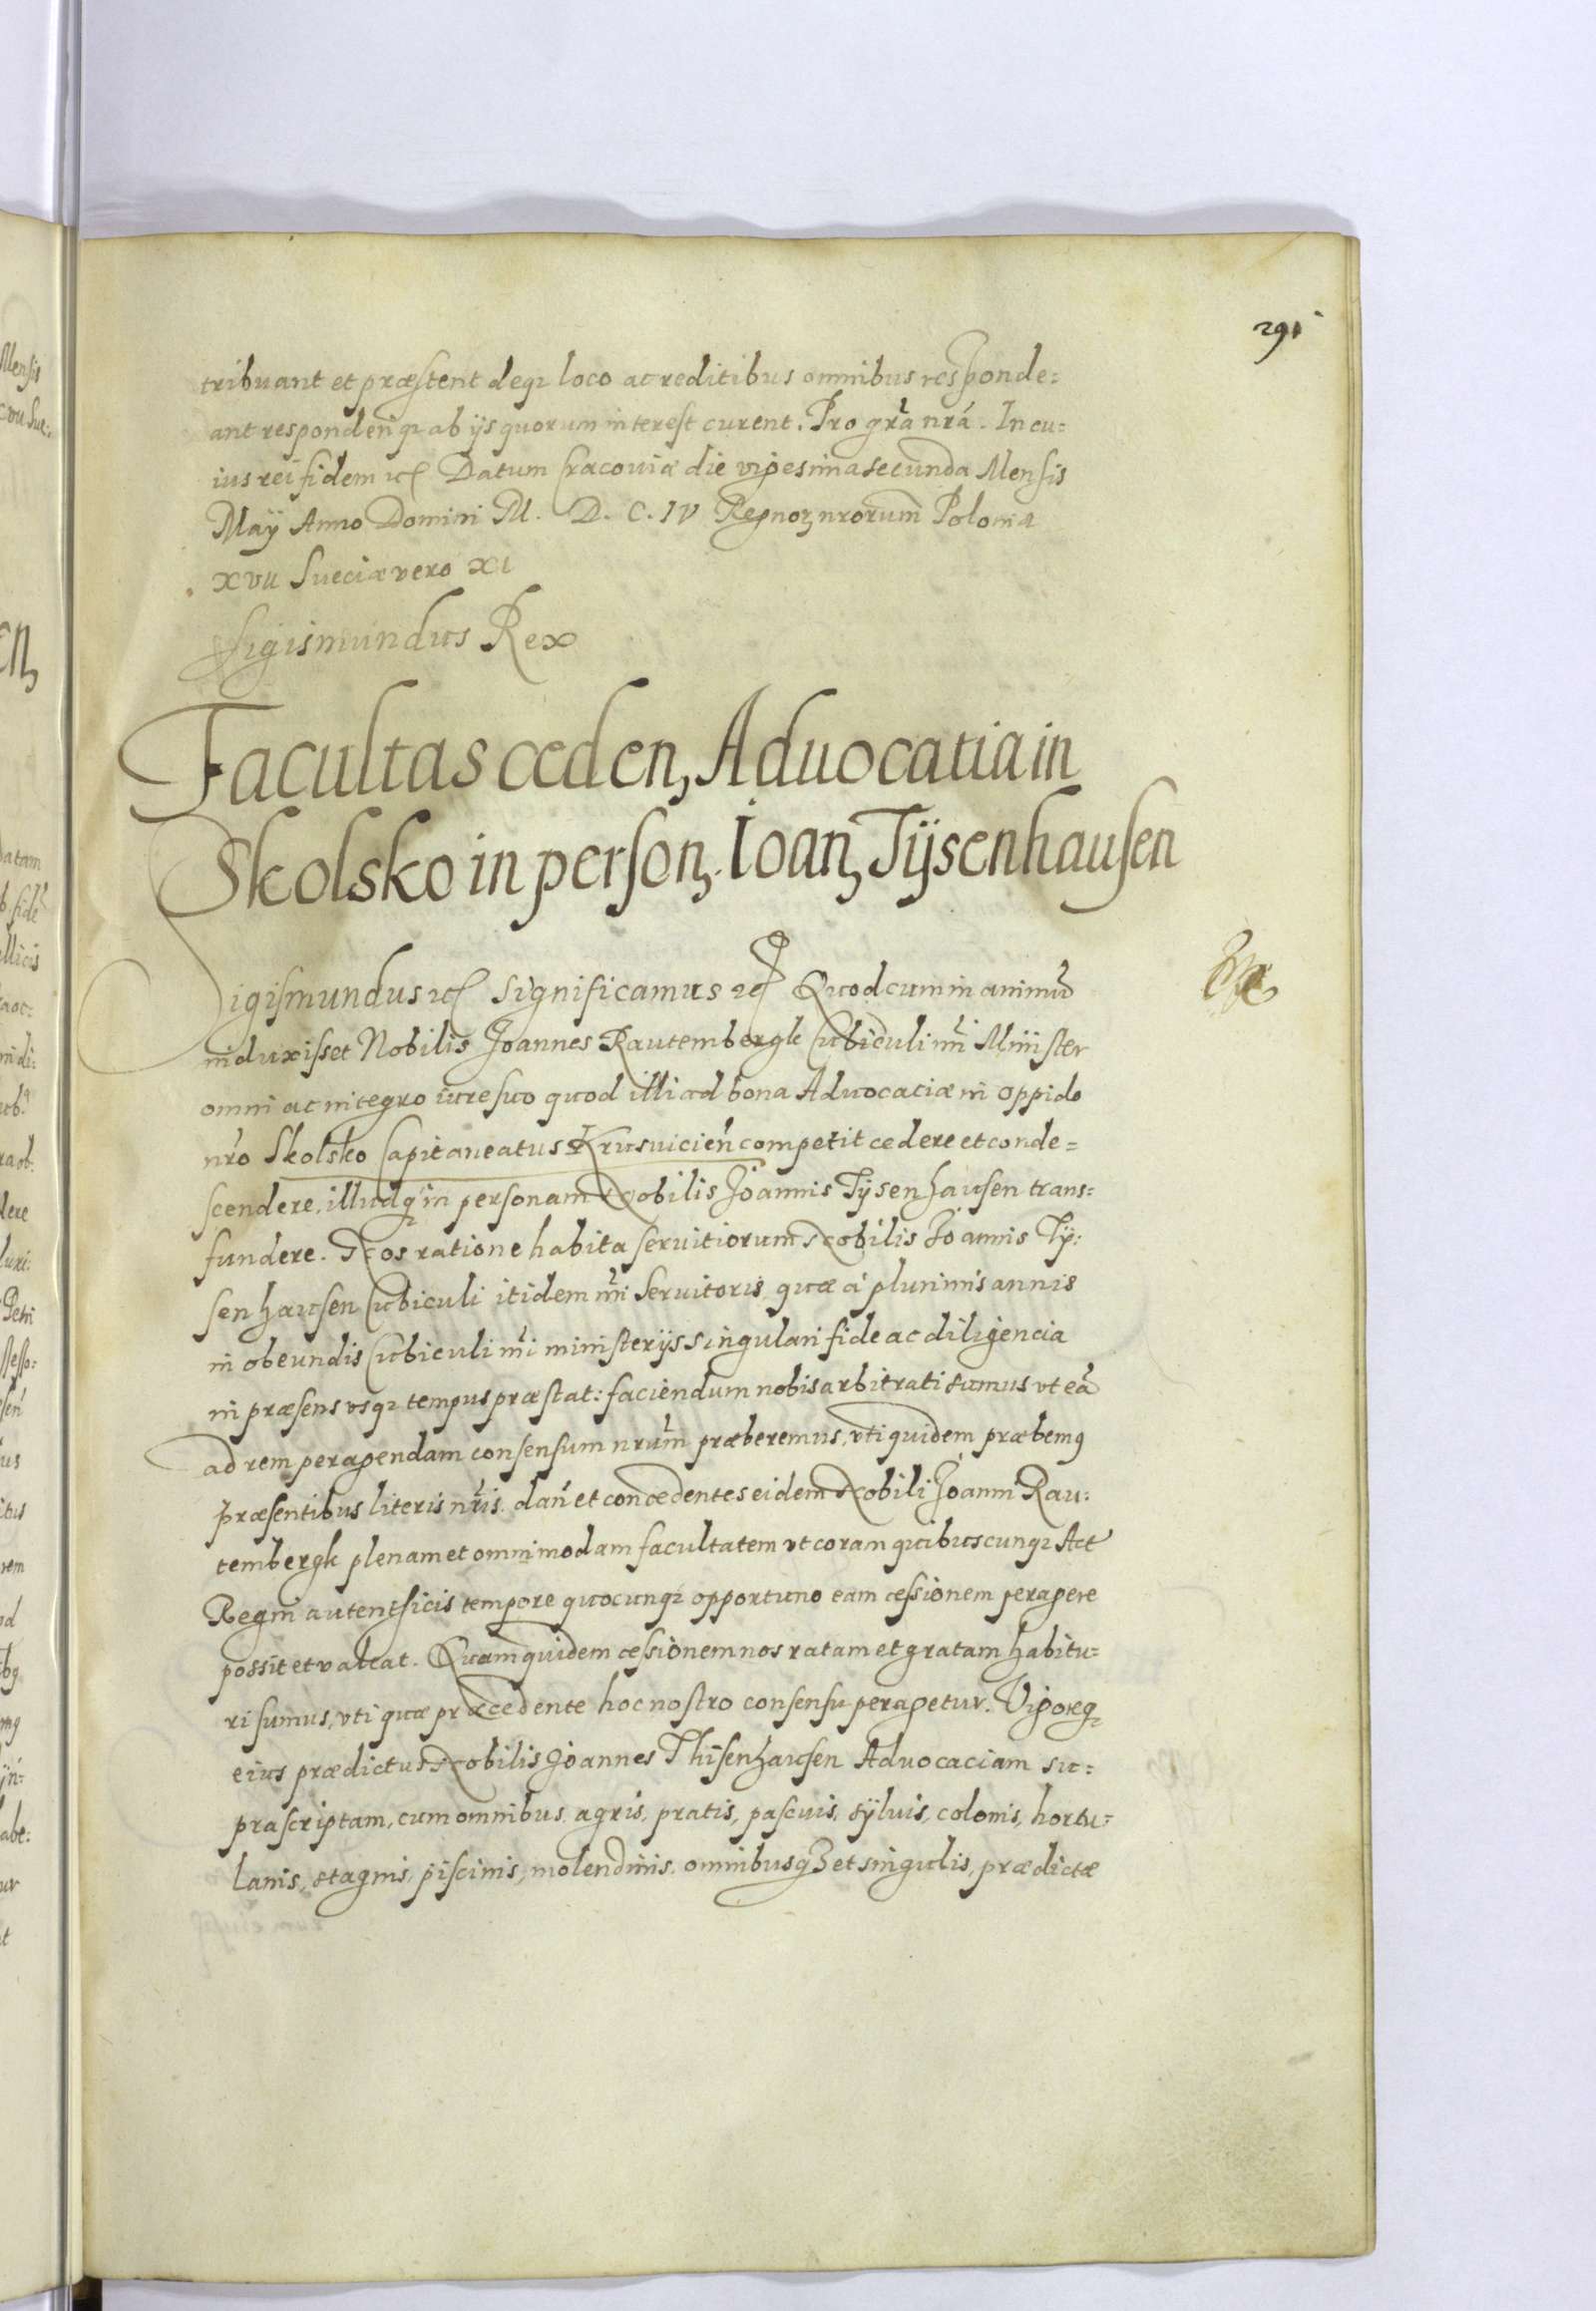 291
tribuant et præstent deqꝫ loco ac reditibus omnibus responde=
ant responderiqꝫ ab ijs quorum interest curent. Pro gr̃a nr̃á. In cu=
ius rei fidem etc Datum Cracoviæ die vigesima secunda Mensis
Maÿ Anno Domini M. D. C. IV Regnorꝫ nrorum̃ Poloniæ
XVII Sueciæ vero XI
Sigismundus Rex
Facultas ceden, Aduocatia in
Skolsko in person. Ioan, Tÿsenhausen
Sigismundus etc Significamus etc Quod cum in animũ
induxisset Nobilis Joannes Rautembergk Cubiculi nr̃i Minister
omni ac integro iure suo quod illi ad bona Aduocaciæ in oppido
nr̃o Skolsko Capitaneatus Krusuicień competit cedere et conde=
scendere, illudqꝫ in personam Nobilis Joannis Tÿsenhausen trans=
fundere. Nos ratione habita seruitiorum Nobilis Joannis Tÿ:
senhausen Cubiculi itidem nr̃i Seruitoris, quæ á plurimis annis
in obeundis Cubiculi nr̃i ministerijs singulari fide ac diligencia
in præsens vsqꝫ tempus præstat: faciendum nobis arbitrati sumus vt eã
ad rem peragendam consensum nrum̃ præberemus, vti quidem præbemꝰ
præsentibus literis nr̃is. dań et concedentes eidem Nobili Joanni Rau:
tembergk plenam et omnimodam facultatem vt coram quibuscunqꝫ Act
Regni autentsicis tempore quocunqꝫ opportuno eam cessionem peragere
possit et valeat. Quam quidem cessionem nos ratam et gratam habitu=
ri sumus, vti quæ præcedente hoc nostro consensu peragetur. Vigoreqꝫ
eius prædictus Nobilis Joannes Thisenhausen Aduocaciam su=
prascriptam, cum omnibus agris, pratis, pascuis, sÿluis, colonis, hortu=
lanis, stagnis, piscinis, molendinis, omnibusqꝫ et singulis, prædictæ